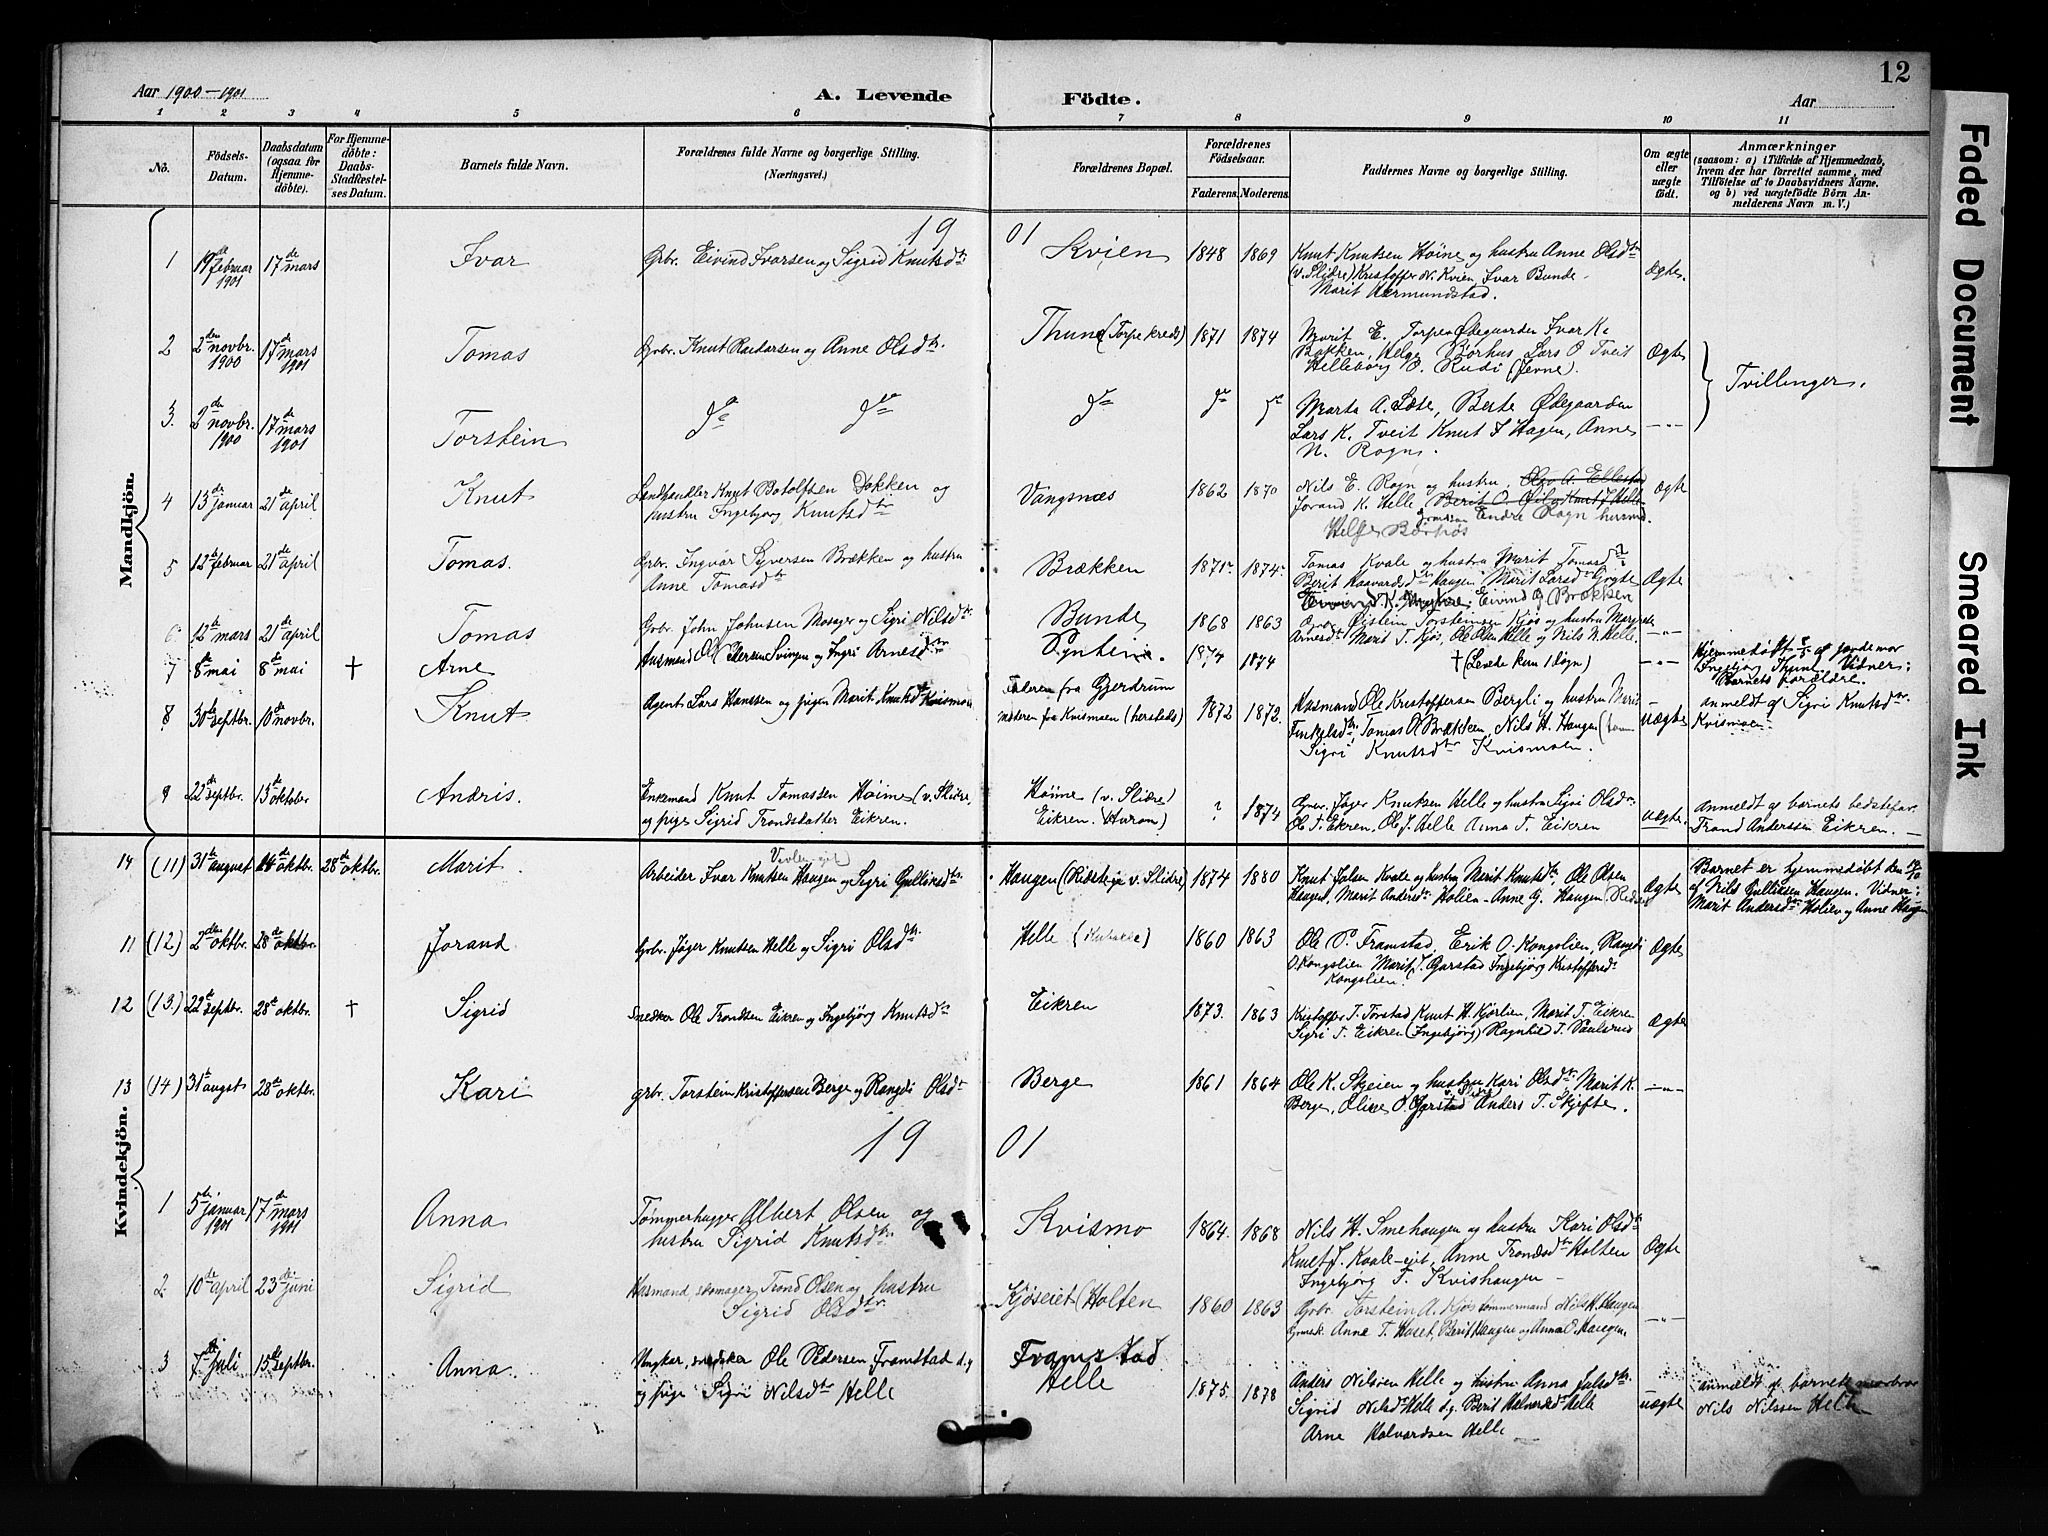 12
Aar 1900-1901
A. Levende
Födte.
Aar
1 2 3 4 5 6 7 8 9 10 11
No.
Födsels-
Datum.
Daabsdatum
(ogsaa for
Hjemme-
döbte).
For Hjemme-
döbte:
Daabs-
Stadfæstel-
ses Datum.
Barnets fulde Navn.
Forældrenes fulde Navne og borgerlige Stilling.
(Næringsvei.)
Forældrenes Bopæl.
Forældrenes
Födselsaar.
Faderens. Moderens.
Faddernes Navne og borgerlige Stilling.
Om ægte
eller
uægte
födt.
Anmærkninger
(saasom: a) i Tilfælde af Hjemmedaab,
hvem der har forrettet samme, med
Tilföielse af to Daabsvidners Navne.
og b) ved uægtefödte Börn An-
melderens Navn m. V.)
Mandkjön.
1901
1 19de februar 1901 17de mars
Ivar
Grbr. Eivind Ivarsen og Sigrid Knutsdtr
Kvien
1848 1869
Knut Knutsen Höine og hustru Anne Olsdtr
(v. Slidre) Kristoffer N. Kvien Ivar Bunde
Marit Hermundstad.
Ægte.
2 2den novbr. 1900 17de mars 1901
Tomas
Grbr. Knut Reidarsen og Anne Olsdtr.
Thune (Torpe kreds)
1871 1874
Marit E. Torpe Ødegaarden Ivar K.
Bakken, Helge Börhus Lars O. Tveit
Helleborg O. Rudi (Jevne).
Ægte
Tvillinger.
3. 2den novbr. 1900 17de mars 1901
Torstein
do do do do do
Marta A. Sæte, Berte Ødegaarden
Lars K. Tveit Knut T Hagen, Anne
N. Rogn.
-"-
4 13de januar 21de april
Knut
Landhandler Knut Botolfsen Dokken og
hustru Ingebjörg Knutsdtr
Vangsnæs
1862 1870
Nils E. Rogn og hustru, Olga A. Ellestad
Jorand K. Helle Berit O. Øilo Knut J Helle
Endre Rogn husmd.
Helge Börhös
Ægte
5 12te februar 21de april
Tomas.
Grbr. Ingvar Syversen Brækken og hustru
Anne Tomasdtr
Brækken
1871 1874
Tomas Kvale og hustru Marit Tomasdtr
Berit Haavardsdtr Haugen Marit Larsdtr
Eivind O Brækken
Ægte
6 12te mars 21de april
Tomas
Grbr. John Johnsen Mosager og Sigri Nilsdtr
Bunde
1868 1863
Grbr Øistein Torsteinsen Kjös og hustru Margrete
Arnesdtr Marit T. Kjös, Ole Olsen Helle og Nils N. Helle
-"-
7 8de mai 8de mai †
Arne
Husmand Ole Pedersen Svingen og Ingri Arnesdtr
1874 1874
† (Levede kun 1 dögn)
-"-
Hjemmedöbt 8/5 af jordemor
Ingebjörg Thune. Vidner:
Barnets forældre.
8 30te septbr. 10de novbr.
Knut
Agent Lars Hanssen og pigen Marit Knutsdtr Kvismoen
Faderen fra Gjerdrum
moderen fra Kvismoen (hersteds)
1872 1872.
Husmand Ole Kristoffersen Bergli og hustru Marit
Finkelsdtr, Tomas O Brækken, Nils H. Haugen
Sigri Knutsdtr Kvismoen.
Uægte
anmeldt af Sigri Knutsdtr
Kvismoen
9 22de septbr. 13de oktober
Andris.
Enkemand Knut Tomassen Höime (v. Slidre,
og pige Sigrid Trondsdatter Eikren.
Höime (v. Slidre)
Eikren. (Hurom)
? 1874
Grbr. Jöger Knutsen Helle og hustru Sigri Olsdtr
Ole T. Eikren, Ole J. Helle Anna T. Eikren
uægte.
Anmeldt af barnets bedstefar
Trond Anderssen Eikren.
Kvindekjön.
14 (11) 31te august 14de oktbr. 28de oktbr.
Marit
Arbeider Ivar Knutsen Haugen og Sigri Gulliksdtr.
Haugen (Ridstein v. Slidre)
1874 1880
Knut Kvale og hustru Marit Knutsdtr, Ole Olsen
Haugen, Marit Andersdtr Holien - Anne G. Haugen
Ægte
Barnet er hjemmedöbt den 14/10
af Nils Gulliksen Haugen. Vidner:
Marit Andersdtr Holien og Anne Haugen
11 (12.) 2den oktbr. 28de oktbr.
Jorand
Grbr. Jöger Knutsen Helle og Sigri Olsdtr.
Helle
1860 1863
Ole P. Framstad, Erik O. Kongslien, Rangdi
O. Kongslien Marit J. Garstad Ingebjörg Kristoffersdtr
Kongslien.
Ægte
12 (13.) 22de septbr. 28de oktbr. †
Sigrid
Snedker Ole Trondsen Eikren og Ingebjörg Knutsdtr
Eikren
1873. 1863
Kristoffer T. Torstad Knut H. Kjörlien, Marit T. Eikren
Sigri T. Eikren (Ingebjörg) Ragnhild T. Paulsrud
Ægte
13 (14) 31te augst 28de oktbr.
Kari
grbr. Torstein Kristoffersen Berge og Rangdi Olsdtr
Berge
1861 1864
Ole K. Skeien og hustru Kari Olsdtr, Marit K.
Berge, Oline O. Garstad Anders T. Skjefte.
-"-
1901
1 5te januar 1901 17de mars 1901
Anna
Tömmerhugger Albert Olsen og
hustru Sigrid Knutsdtr.
Kvismo
1864. 1868
Nils H. Smehaugen og hustru Kari Olsdtr
Knut J. Kvale-eit, Anne Trondsdtr Holten
Ingebjörg T. Kvishaugen
Ægte
2. 10de april 23de juni
Sigrid
Husmand skomager Trond Olsen og hustru
Sigrid Olsdtr.
Kjöseiet (Holten
1860 1863
Grbr. Torstein A. Kjös tömmermand Nils H. Haugen
Anne T. Huset, Berit Haugen og Anna O. Haugen.
-"-
3 7de juli 15de septbr.
Anna.
Ungkar, snedker Ole Pedersen Framstad d.y.
og pige Sigri Nilsdtr Helle
Framstad
Helle
1875. 1878
Anders Nilssen Helle og hustru Anna Julsdtr.
Sigrid Nilsdtr Helle d.y. Berit Halvorsdtr Helle
Arne Halvardsen Helle
uægte
anmeldt af barnets morbror
Nils Nilssen Helle
Faded Document
Smeared Ink